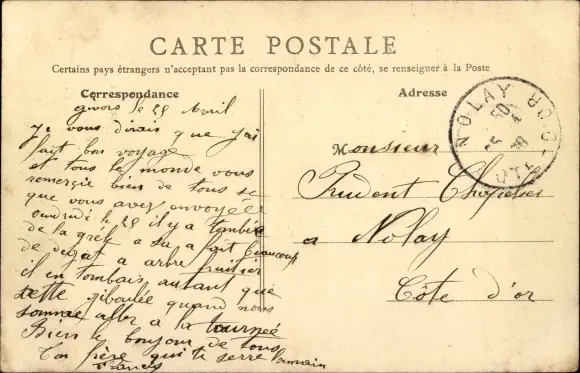 CARTE POSTALE
Certains pays étrangers n'acceptant pas la correspondance de ce côté, se renseigner à la Poste
Correspondance
Adresse
givors le 25 Avril
Je vous dirais que j'ai
fait bon voyage
et tous le monde vous
remerçie bien de tous se
que vous avez envoyée
vendredi le 25 il y a tombée
de la grêle sa a fait beaucoup
de degat a arbre fruitier
il en tombais autant que
sette giboulée quand nous
somme aller a la tournée
Bien le bonjour de tous
Ton frère qui te serre la main
Francis
Monsieur
Prudent
a Nolay
Côte d'or
NOLAY
CÔTE D'OR